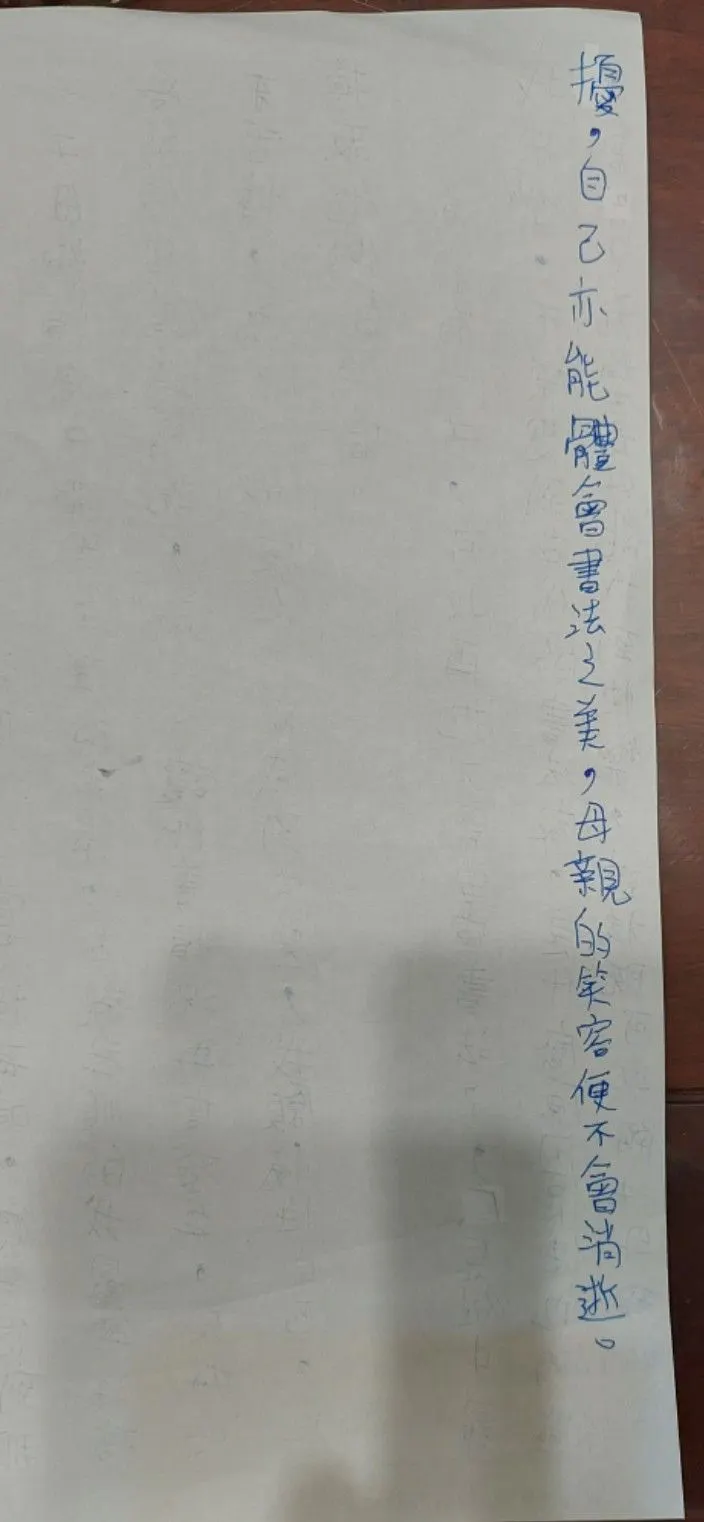 擾，自己亦能體會書法之美，母親的笑容便不會消逝。